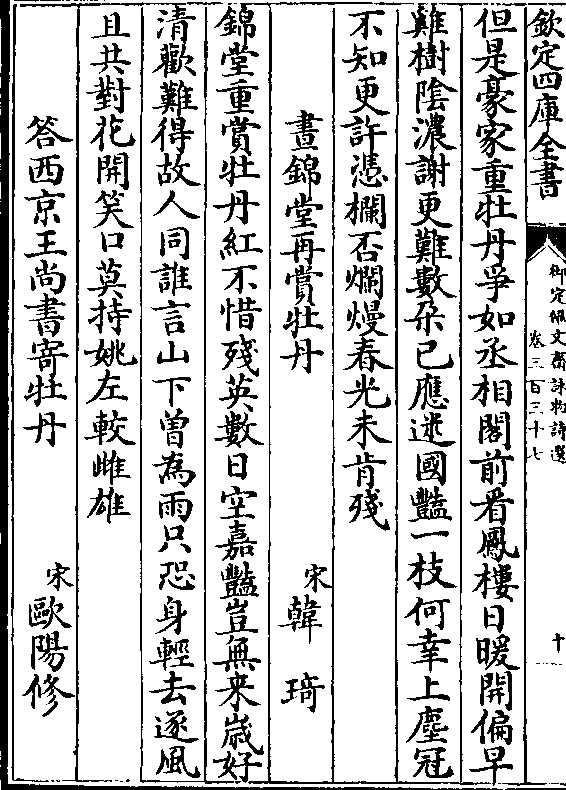 欽定四庫全書
御定佩文齋詠物詩選
卷三百三十七
十
但是豪家重牡丹爭如丞相閣前看鳳樓日暖開偏早
雞樹陰濃謝更難數朶已應迷國豔一枝何幸上塵冠
不知更許憑欄否爛熳春光未肯殘
晝錦堂再賞牡丹
宋韓琦
錦堂重賞牡丹紅不惜殘英數日空嘉豔豈無来歲好
清歡難得故人同誰言山下曽為雨只恐身輕去逐風
且共對花開笑口莫持姚左較雌雄
答西京王尚書寄牡丹
宋歐陽修